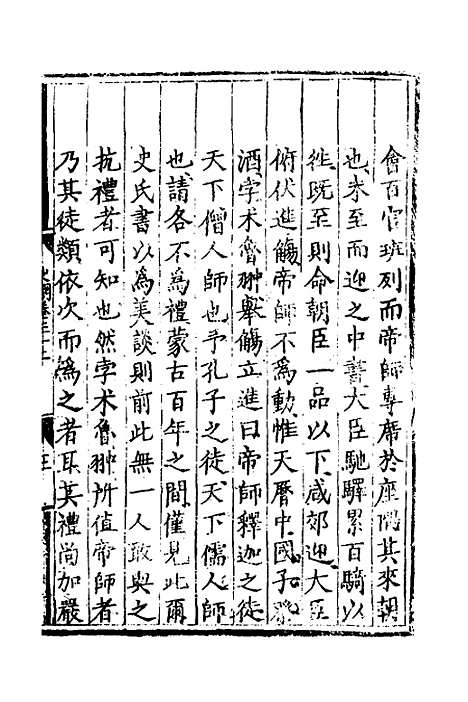 會百官班列而帝師專席於座隅其來朝
也未至而迎之中書大臣馳驛累百騎以
徃既至則命朝臣一品以下咸郊迎大臣
俯伏進觴帝師不爲動惟天曆中國子祭
酒孛术魯翀舉觴立進曰帝師釋迦之徒
天下僧人師也予孔子之徒天下儒人師
也請各不爲禮蒙古百年之間僅見此爾
史氏書以爲美談則前此無一人敢與之
抗禮者可知也然孛术魯翀所值帝師者
乃其徒類依次而爲之者耳其禮尚加嚴